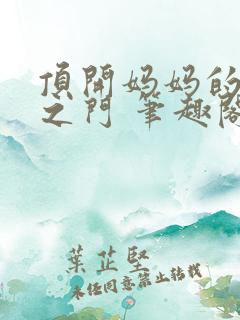 頂開妈妈的
之门 筆趣阁
葉芷堅
未经同意禁止转载